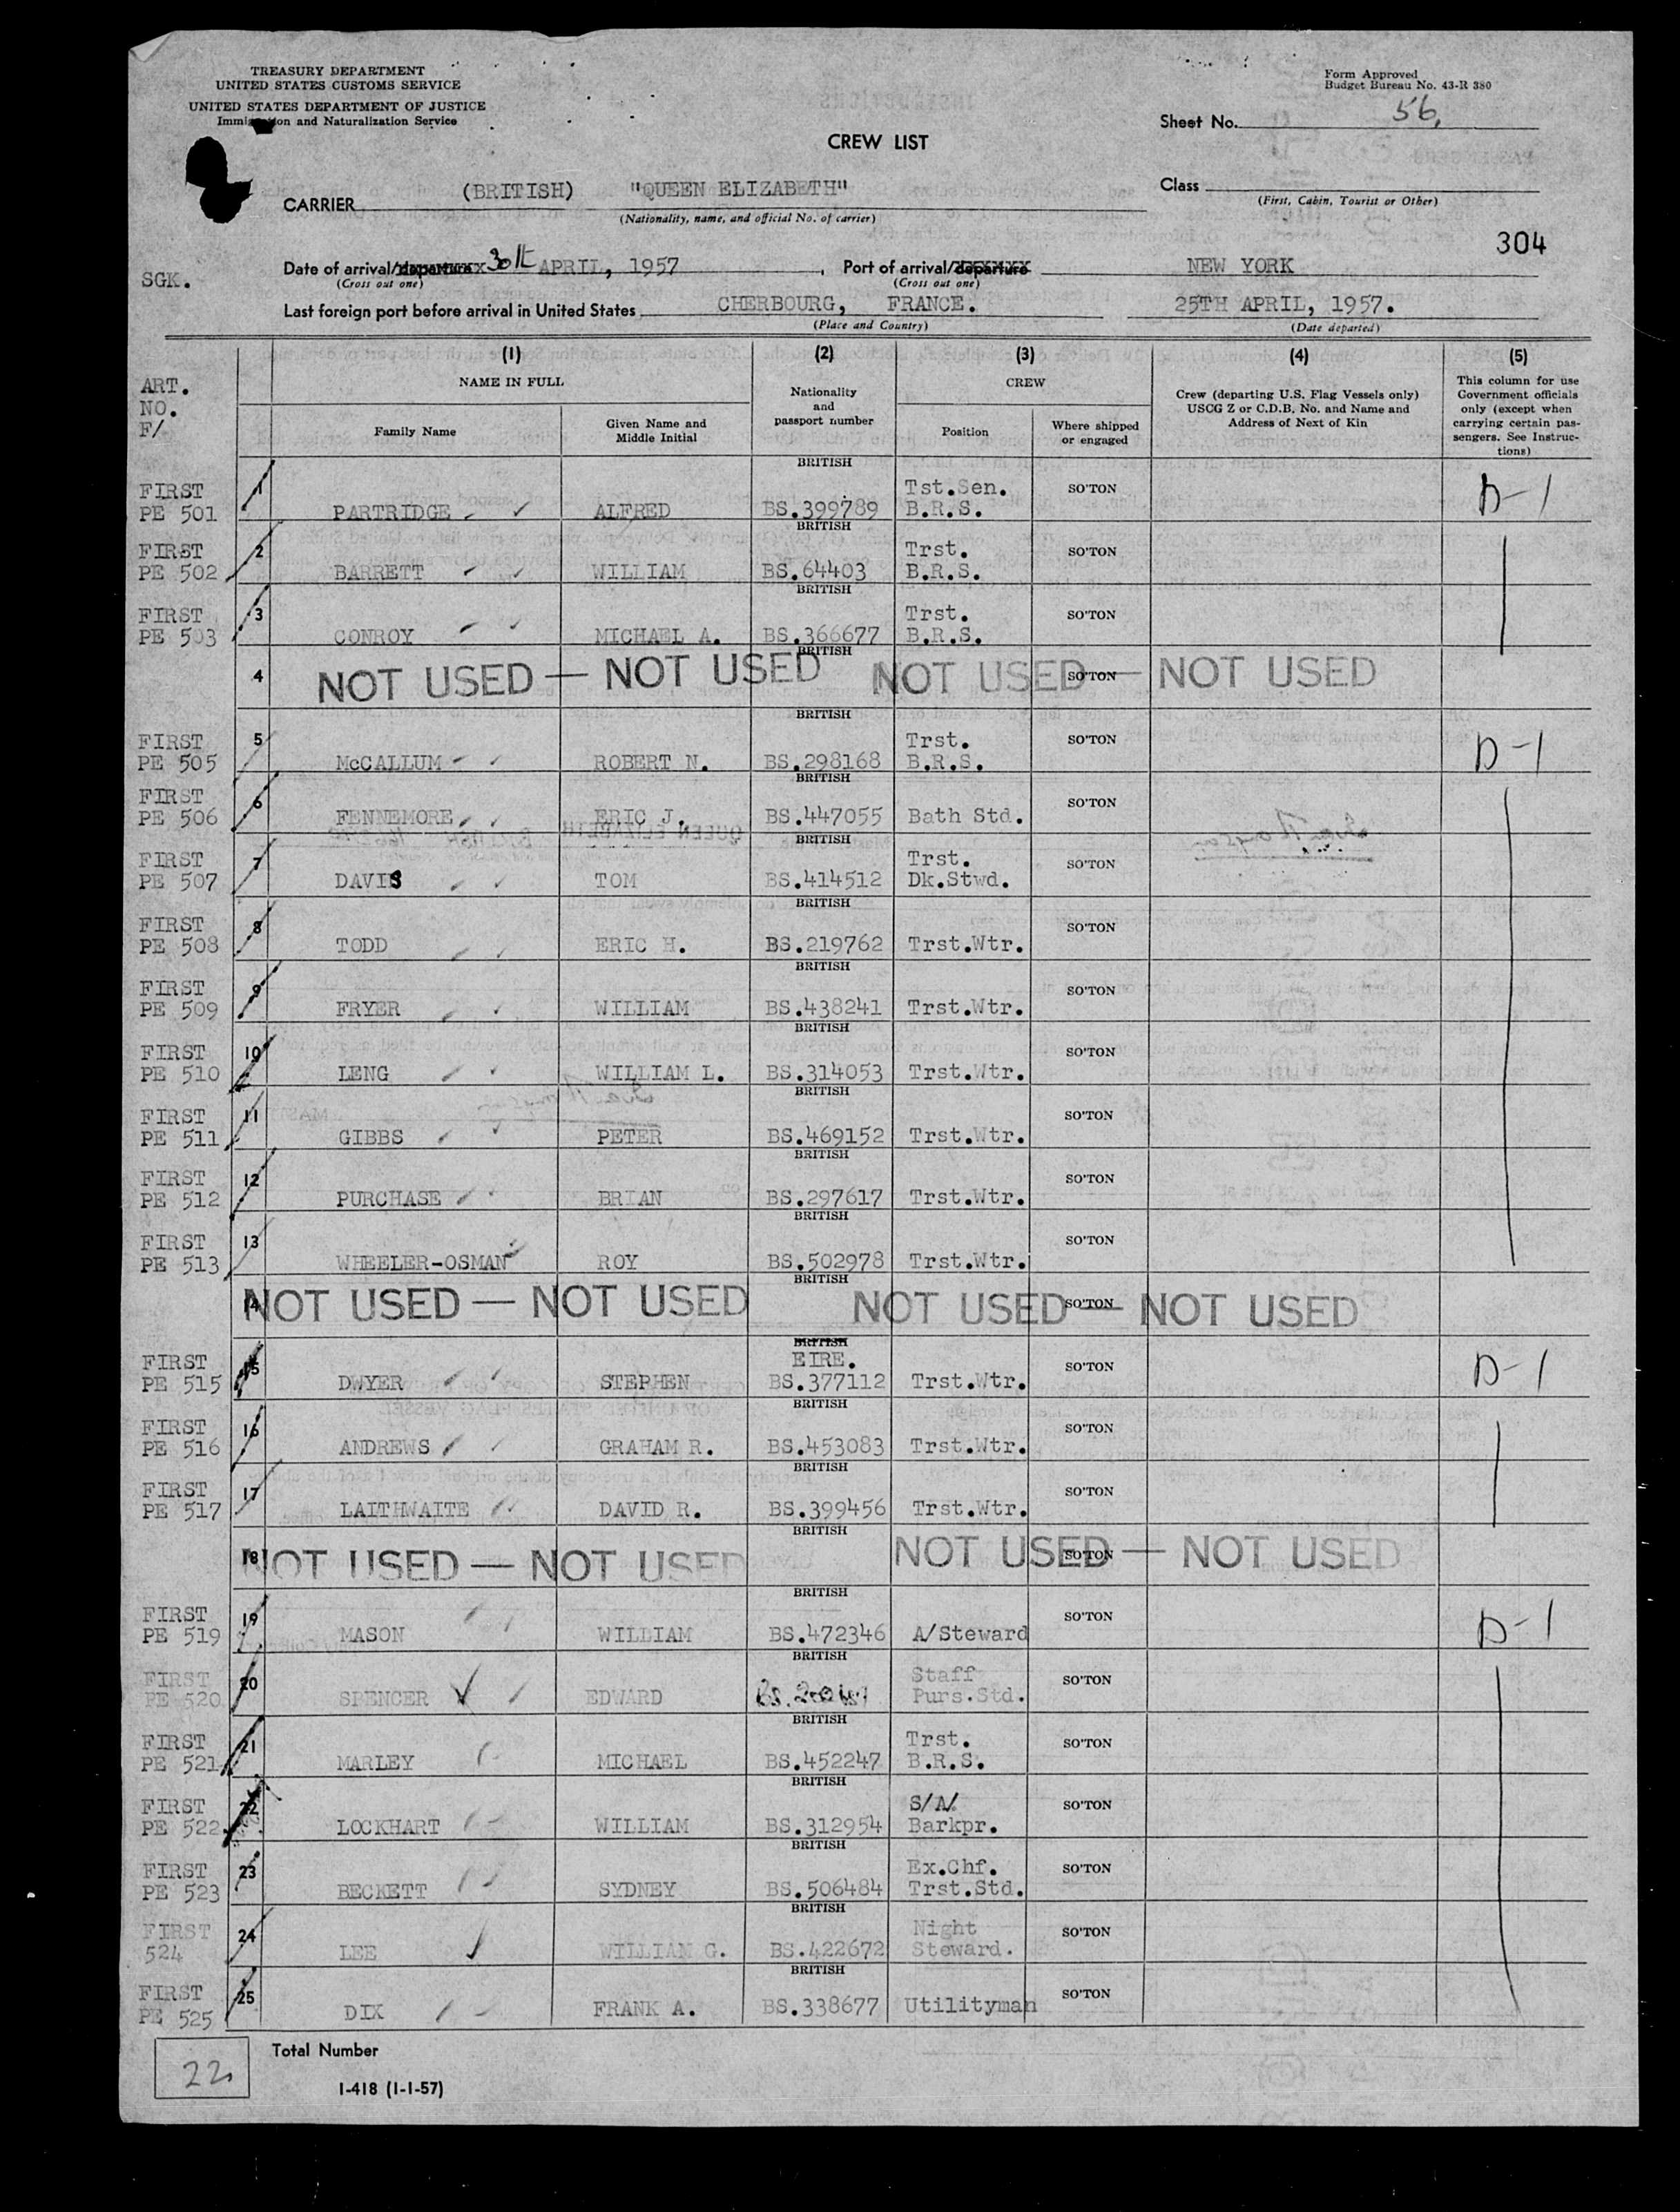 TREASURY DEPARTMENT
UNITED STATES CUSTOMS SERVICE
UNITED STATES DEPARTMENT OF JUSTICE
Immigration and Naturalization Service
Form Approved
Budget Bureau No. 43-R 380
Sheet No. 56.
CREW LIST
Class
(First, Cabin, Tourist or Other)
CARRIER (BRITISH) "QUEEN ELIZABETH"
(Nationality, name, and official No. of carrier)
304
SGK.
Date of arrival/departure 30th APRIL, 1957, Port of arrival/departure NEW YORK
(Cross out one) (Cross out one)
Last foreign port before arrival in United States CHERBOURG, FRANCE. 25TH APRIL, 1957.
(Place and Country) (Date departed)
(1) (2) (3) (4) (5)
ART. NO. F/
NAME IN FULL
Family Name
Given Name and Middle Initial
Nationality and passport number
CREW
Position
Where shipped or engaged
Crew (departing U.S. Flag Vessels only) USCG Z or C.D.B. No. and Name and Address of Next of Kin
This column for use Government officials only (except when carrying certain passengers. See Instructions)
FIRST PE 501 1 PARTRIDGE ALFRED BRITISH BS.399789 Tst.Sen. B.R.S. SO'TON D-1
FIRST PE 502 2 BARRETT WILLIAM BRITISH BS.64403 Trst. B.R.S. SO'TON
FIRST PE 503 3 CONROY MICHAEL A. BRITISH BS.366677 Trst. B.R.S. SO'TON
4 NOT USED — NOT USED BRITISH NOT USED SO'TON — NOT USED
FIRST PE 505 5 McCALLUM ROBERT N. BRITISH BS.298168 Trst. B.R.S. SO'TON D-1
FIRST PE 506 6 FENNEMORE ERIC J. BRITISH BS.447055 Bath Std. SO'TON
FIRST PE 507 7 DAVIS TOM BRITISH BS.414512 Trst. Dk.Stwd. SO'TON
FIRST PE 508 8 TODD ERIC H. BRITISH BS.219762 Trst.Wtr. SO'TON
FIRST PE 509 9 FRYER WILLIAM BRITISH BS.438241 Trst.Wtr. SO'TON
FIRST PE 510 10 LENG WILLIAM L. BRITISH BS.314053 Trst.Wtr. SO'TON
FIRST PE 511 11 GIBBS PETER BRITISH BS.469152 Trst.Wtr. SO'TON
FIRST PE 512 12 PURCHASE BRIAN BRITISH BS.297617 Trst.Wtr. SO'TON
FIRST PE 513 13 WHEELER-OSMAN ROY BRITISH BS.502978 Trst.Wtr. SO'TON
14 NOT USED — NOT USED BRITISH NOT USED SO'TON — NOT USED
FIRST PE 515 15 DWYER STEPHEN BRITISH EIRE. BS.377112 Trst.Wtr. SO'TON D-1
FIRST PE 516 16 ANDREWS GRAHAM R. BRITISH BS.453083 Trst.Wtr. SO'TON
FIRST PE 517 17 LAITHWAITE DAVID R. BRITISH BS.399456 Trst.Wtr. SO'TON
18 NOT USED — NOT USED BRITISH NOT USED SO'TON — NOT USED
FIRST PE 519 19 MASON WILLIAM BRITISH BS.472346 A/Steward SO'TON D-1
FIRST PE 520 20 SPENCER EDWARD BRITISH Staff Purs.Std. SO'TON
FIRST PE 521 21 MARLEY MICHAEL BRITISH BS.452247 Trst. B.R.S. SO'TON
FIRST PE 522 22 LOCKHART WILLIAM BRITISH BS.312954 S/A/ Barkpr. SO'TON
FIRST PE 523 23 BECKETT SYDNEY BRITISH BS.506484 Ex.Chf. Trst.Std. SO'TON
FIRST 524 24 LEE WILLIAM G. BRITISH BS.422672 Night Steward. SO'TON
FIRST PE 525 25 DIX FRANK A. BRITISH BS.338677 Utilityman SO'TON
22 Total Number
I-418 (1-1-57)